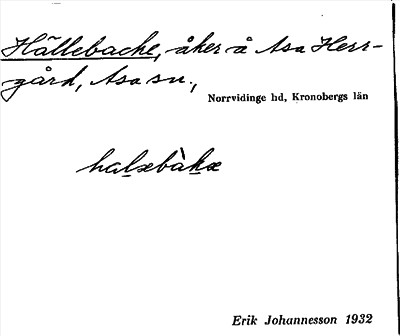 Hällebacke, åker å Asa Herr-
gård, Asa sn.,
Norrvidinge hd, Kronobergs län
halæbàkæ
Erik Johannesson 1932